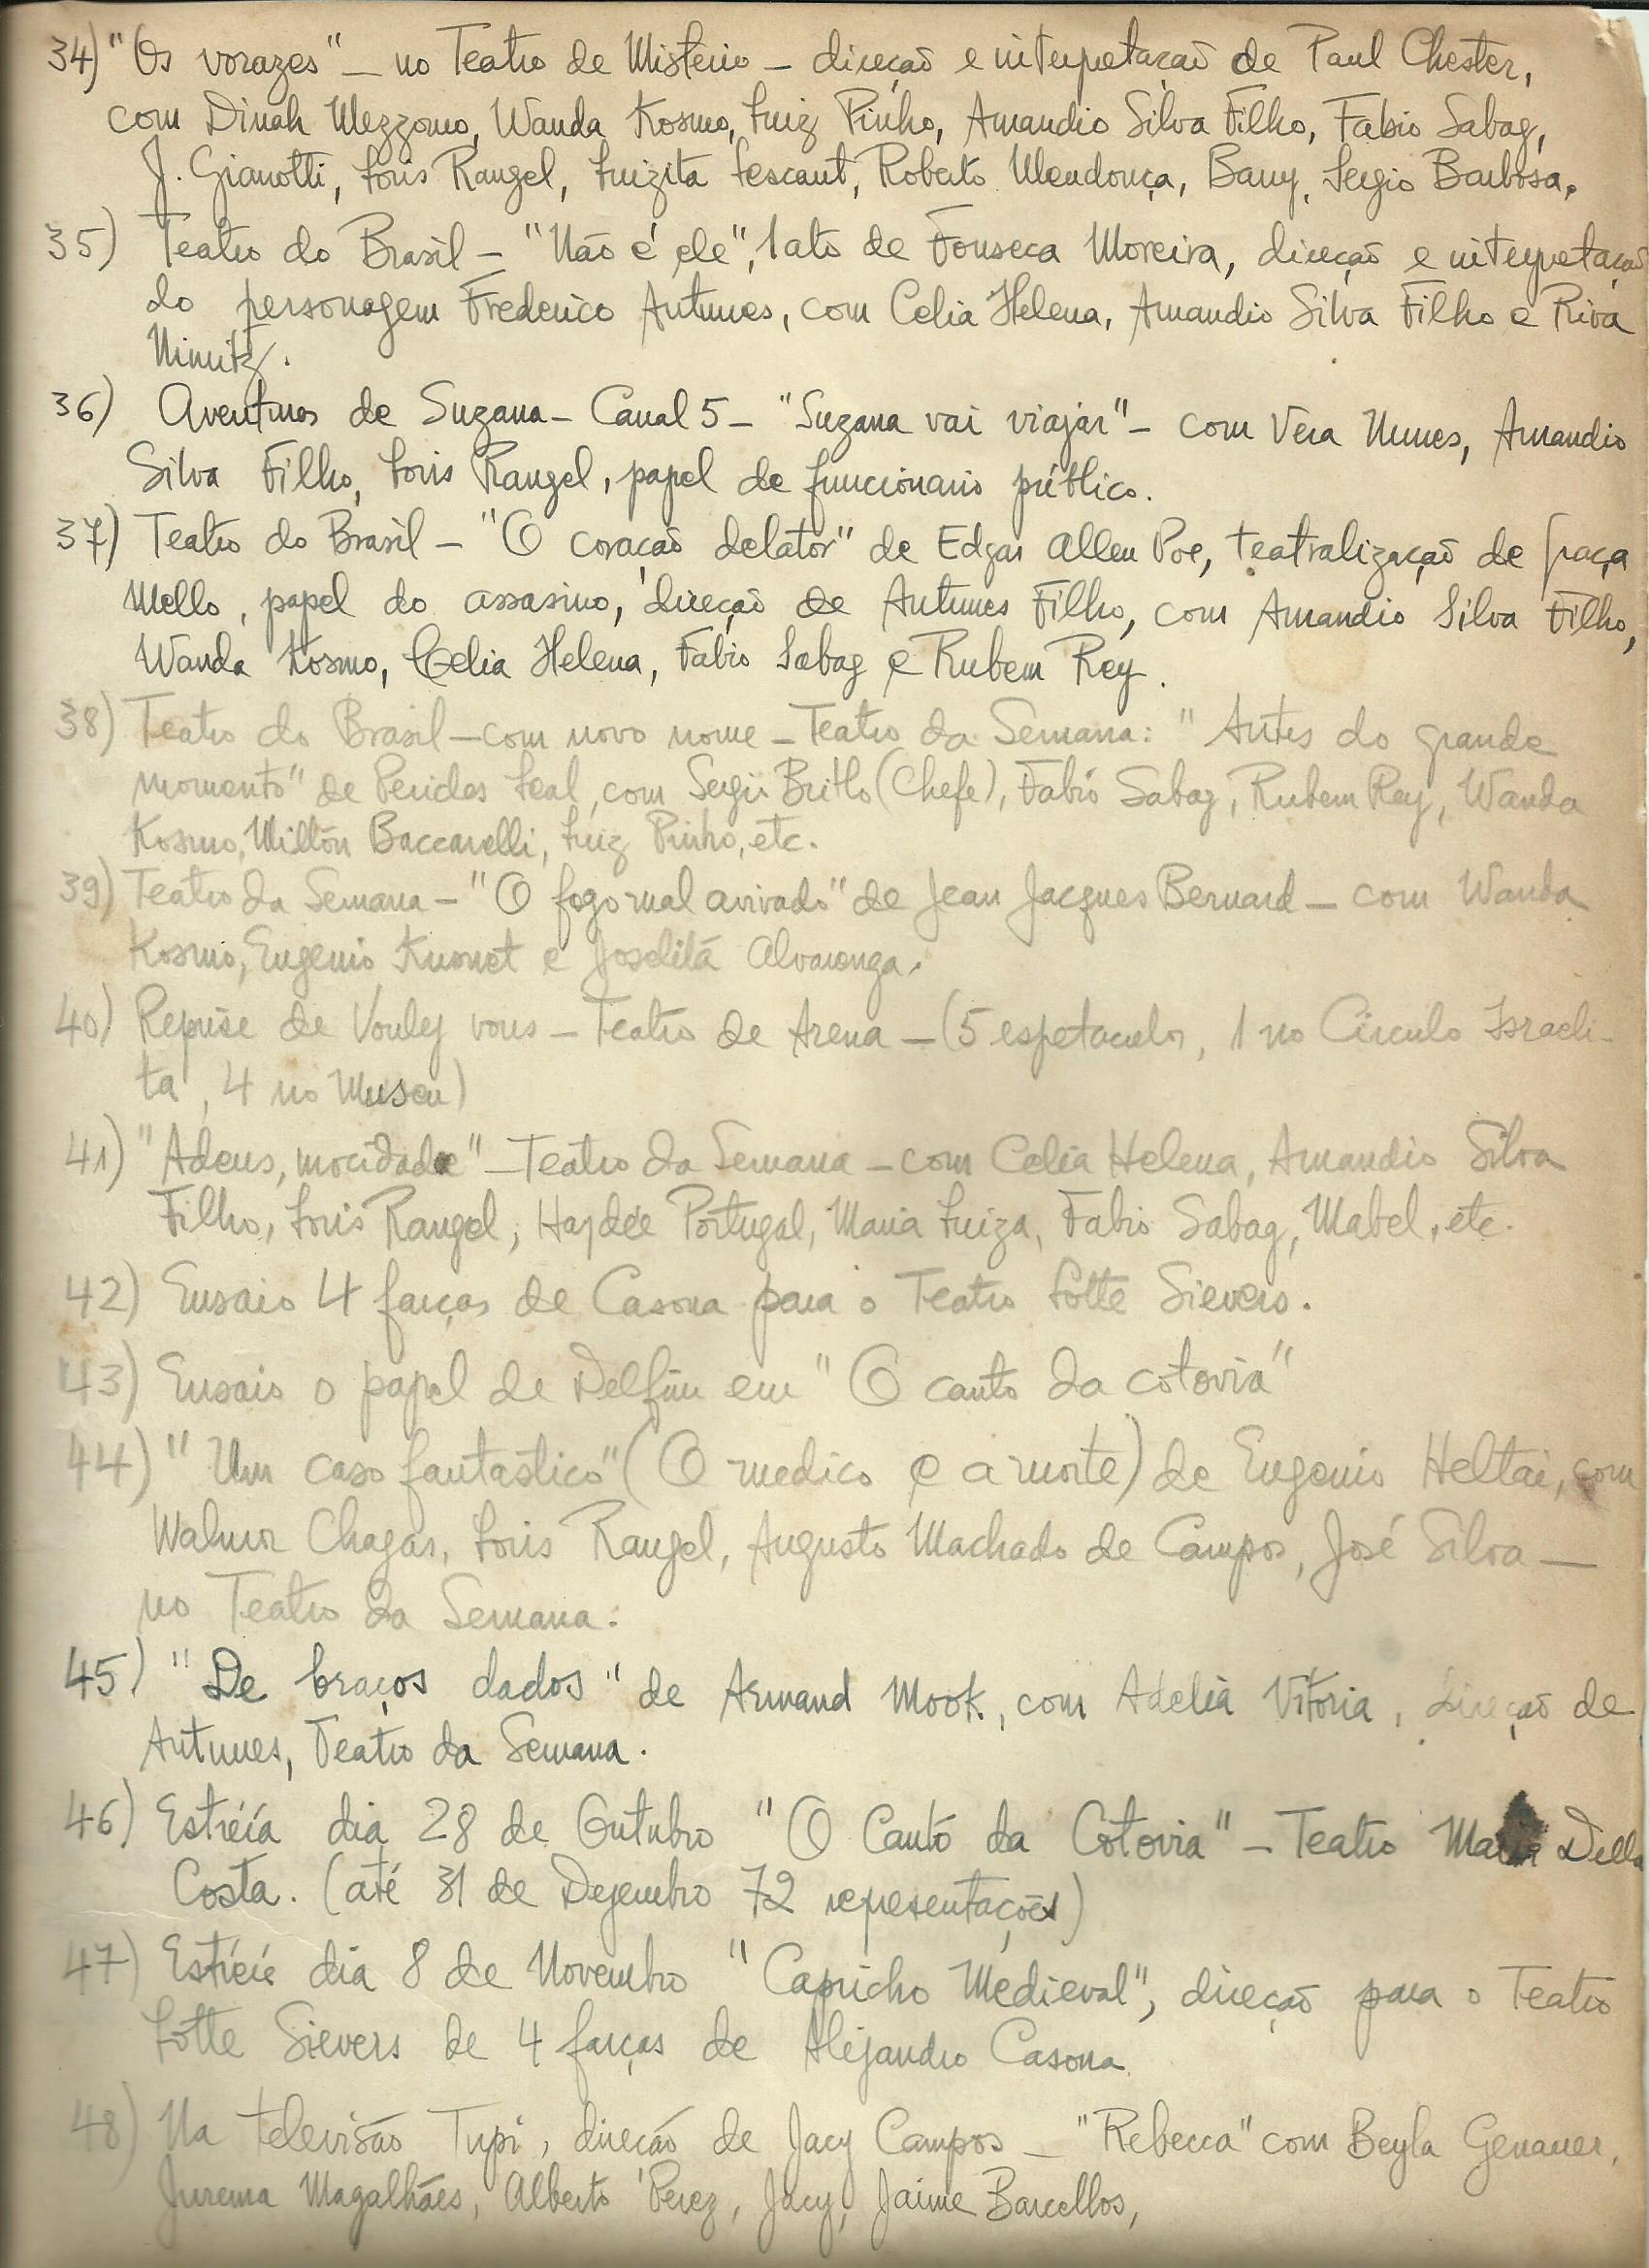 34) "Os vorazes" – no Teatro de Mistério – direção e interpretação de Paul Chester,
com Dinah Mezzomo, Wanda Kosmo, Luiz Pinho, Amandio Silva Filho, Fabio Sabag,
J. Gianotti, Loris Rangel, Luizita Lescaut, Roberto Mendonça, Bany, Sergio Barbosa.
35) Teatro do Brasil – "Não é ele", 1 ato de Fonseca Moreira, direção e interpretação
do personagem Frederico Antunes, com Celia Helena, Amandio Silva Filho e Riva
Nimitz.
36) Aventuras de Suzana – Canal 5 – "Suzana vai viajar" – com Vera Nunes, Amandio
Silva Filho, Loris Rangel, papel de funcionario público.
37) Teatro do Brasil – "O coração delator" de Edgar Allen Poe, teatralização de Graça
Mello, papel do assasino, direção de Antunes Filho, com Amandio Silva Filho,
Wanda Kosmo, Celia Helena, Fabio Sabag e Rubem Rey.
38) Teatro do Brasil – com novo nome – Teatro da Semana: "Antes do grande
momento" de Pericles Leal, com Sergio Britto (Chefe), Fabio Sabag, Rubem Rey, Wanda
Kosmo, Milton Baccarelli, Luiz Pinho, etc.
39) Teatro da Semana – "O fogo mal avivado" de Jean Jacques Bernard – com Wanda
Kosmo, Eugenio Kusnet e Joselita Alvarenga.
40) Reprise de Vouley vous – Teatro de Arena – (5 espetaculos, 1 no Circulo Israeli-
ta, 4 no Museu)
41) "Adeus, mocidade" – Teatro da Semana – com Celia Helena, Amandio Silva
Filho, Loris Rangel, Haydée Portugal, Maria Luiza, Fabio Sabag, Mabel, etc.
42) Ensaio 4 farças de Casona para o Teatro Lotte Sievers.
43) Ensaio o papel de Delfim em "O canto da cotovia"
44) "Um caso fantastico" (O medico e a morte) de Eugenio Heltai, com
Walmor Chagas, Loris Rangel, Augusto Machado de Campos, José Silva –
no Teatro da Semana.
45) "De braços dados" de Armand Mook, com Adelia Vitoria, direção de
Antunes, Teatro da Semana.
46) Estréia dia 28 de Outubro "O Canto da Cotovia" – Teatro Maria Della
Costa. (até 31 de Dezembro 72 representações)
47) Estréia dia 8 de Novembro "Capricho Medieval", direção para o Teatro
Lotte Sievers de 4 farças de Alejandro Casona
48) Na televisão Tupi, direção de Jacy Campos – "Rebecca" com Beyla Genauer,
Jurema Magalhães, Alberto Perez, Jacy, Jaime Barcellos,